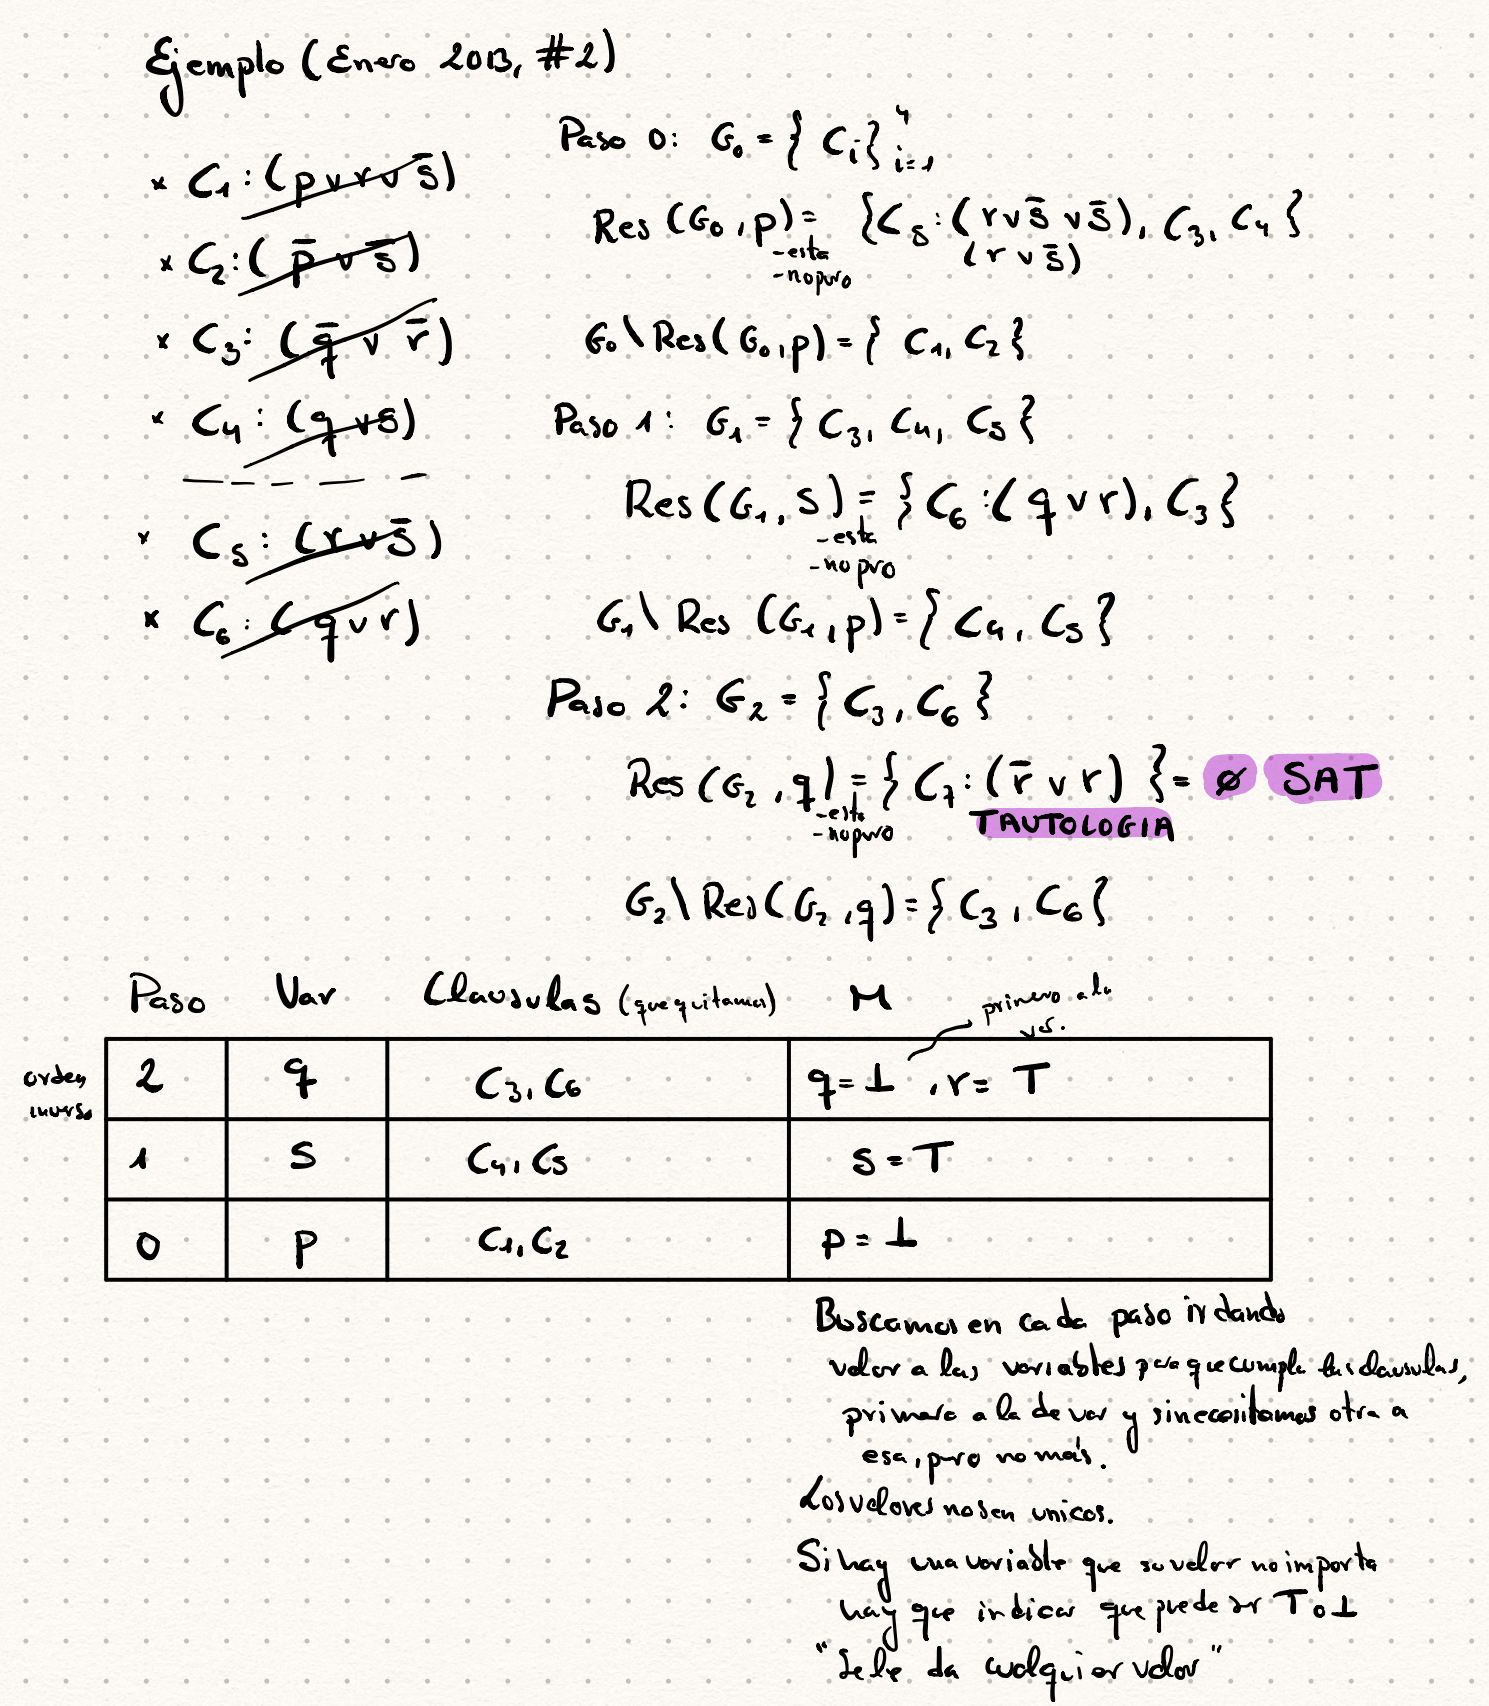 Ejemplo (Enero 2013, #2)
× C₁: (p ∨ r ∨ s̄)
× C₂: (p̄ ∨ s̄)
× C₃: (q̄ ∨ r̄)
× C₄: (q ∨ s)
× C₅: (r ∨ s̄)
× C₆: (q ∨ r)
Paso 0: G₀ = { Cᵢ }⁴ᵢ₌₁
Res (G₀, p) = {C₅: (r ∨ s̄ ∨ s̄), C₃, C₄}
-esta
(r ∨ s̄)
-no puro
G₀ \ Res(G₀, p) = { C₁, C₂}
Paso 1: G₁ = { C₃, C₄, C₅ }
Res (G₁, s) = {C₆: (q ∨ r), C₃}
-esta
-no pro
G₁ \ Res (G₁, p) = { C₄, C₅ }
Paso 2: G₂ = { C₃, C₆ }
Res (G₂, q) = { C₇: (r̄ ∨ r) } = ∅ SAT
-esta
-nopuro
TAUTOLOGIA
G₂ \ Res (G₂, q) = { C₃, C₆ {
Paso Var Clausulas (que quitamos) M
primero a la
var.
orden
inverso
2 q C₃, C₆ q = ⊥, r = T
1 s C₄, C₅ s = T
0 p C₁, C₂ p = ⊥
Buscamos en cada paso ir dando
valor a las variables para que cumpla las clausulas,
primero a la de var y si necesitamos otra a
esa, pero no más.
Los valores no son unicos.
Si hay una variable que su valor no importa
hay que indicar que puede ser T o ⊥
"Se le da cualquier valor"